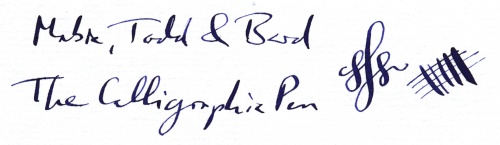 Mabie, Todd & Bard
The Calligraphic Pen